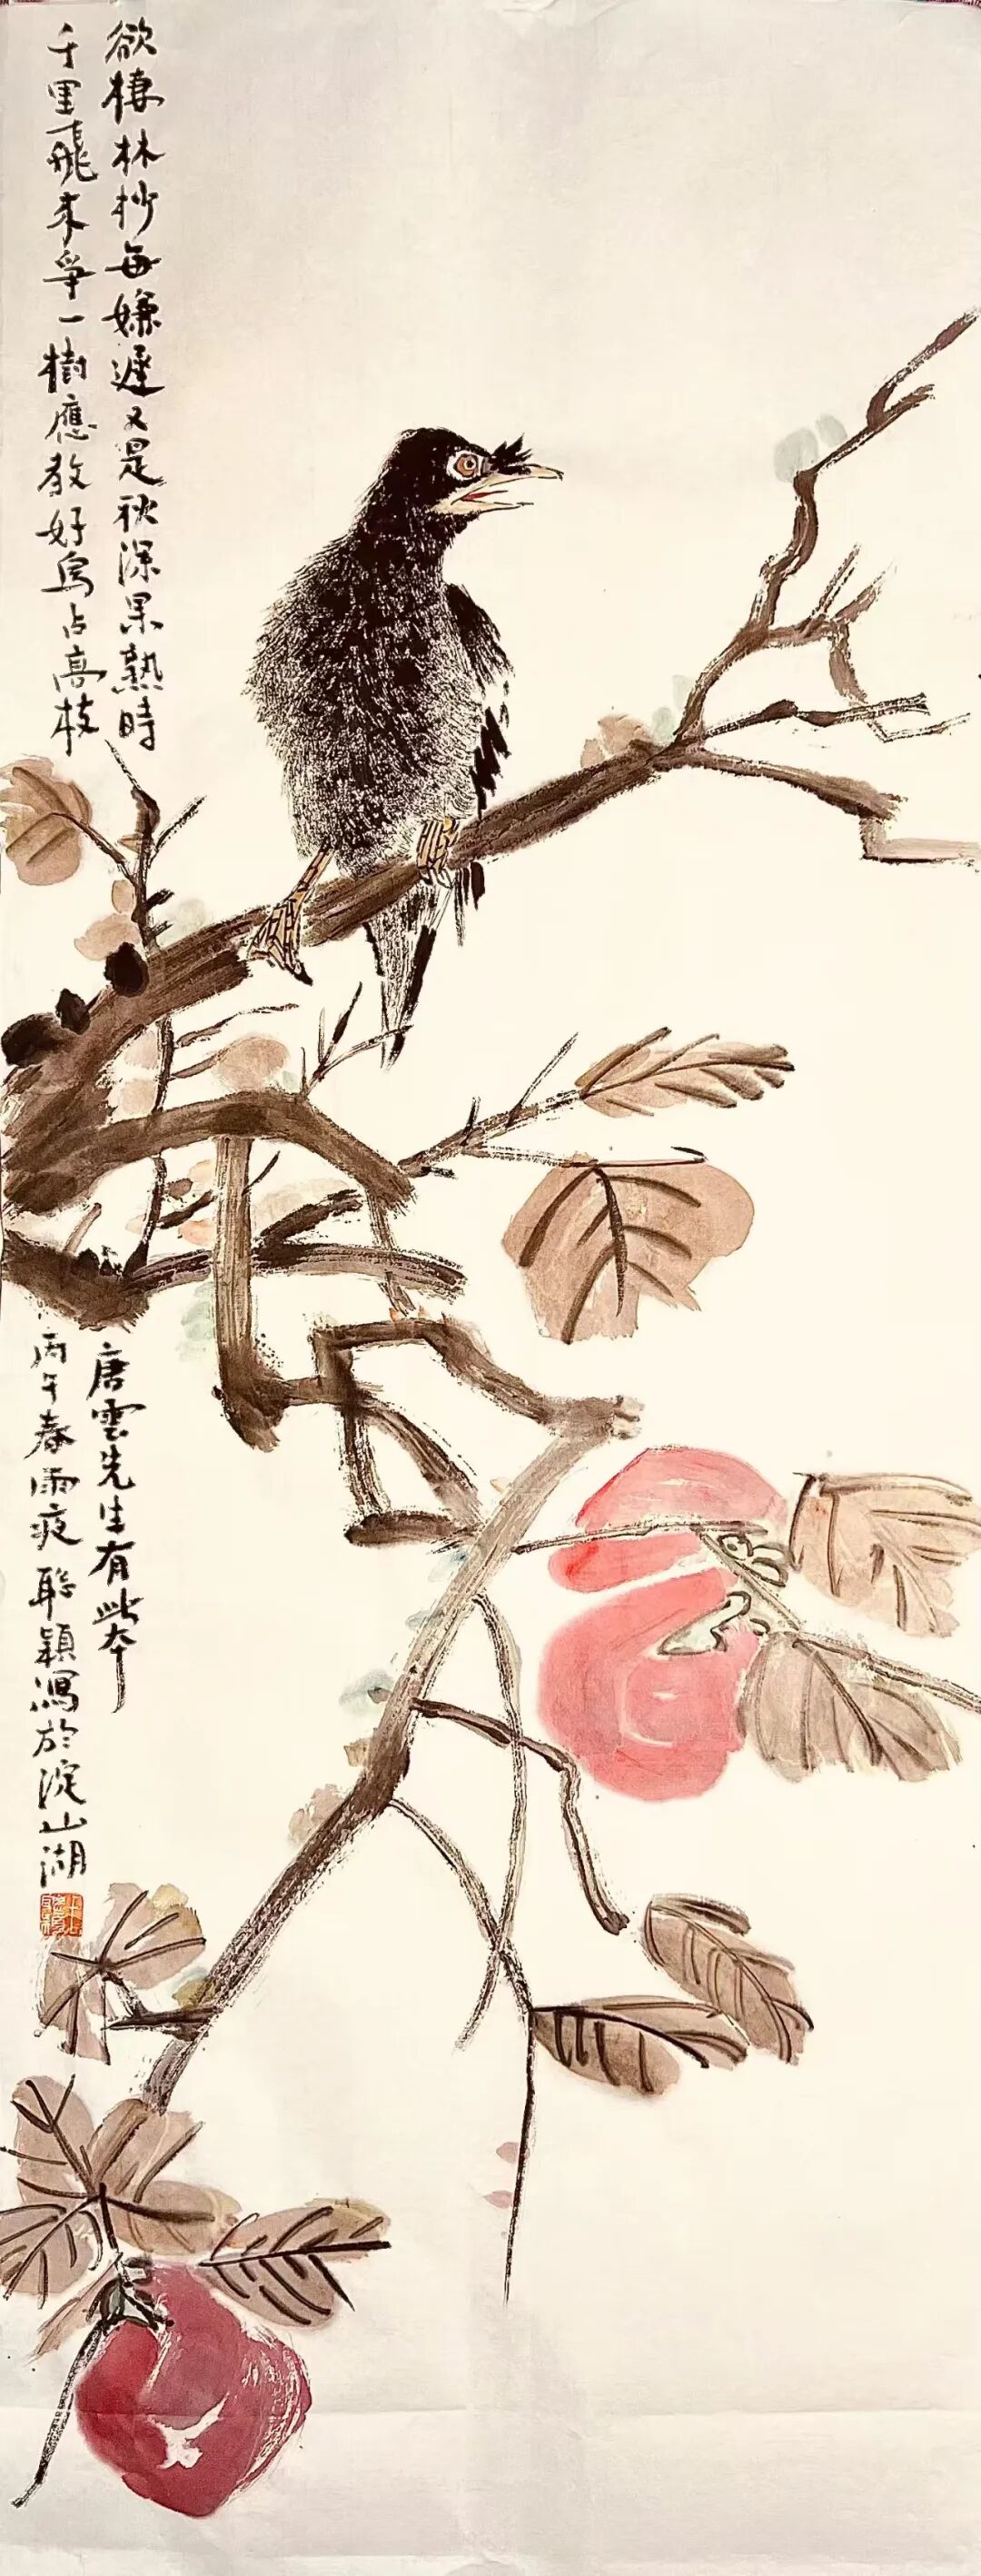 欲棲林杪每嫌遲又是秋深果熟時
千里飛来爭一樹應教好鳥占高枝
唐雲先生有此本
丙午春雨夜聡穎寫於淀山湖